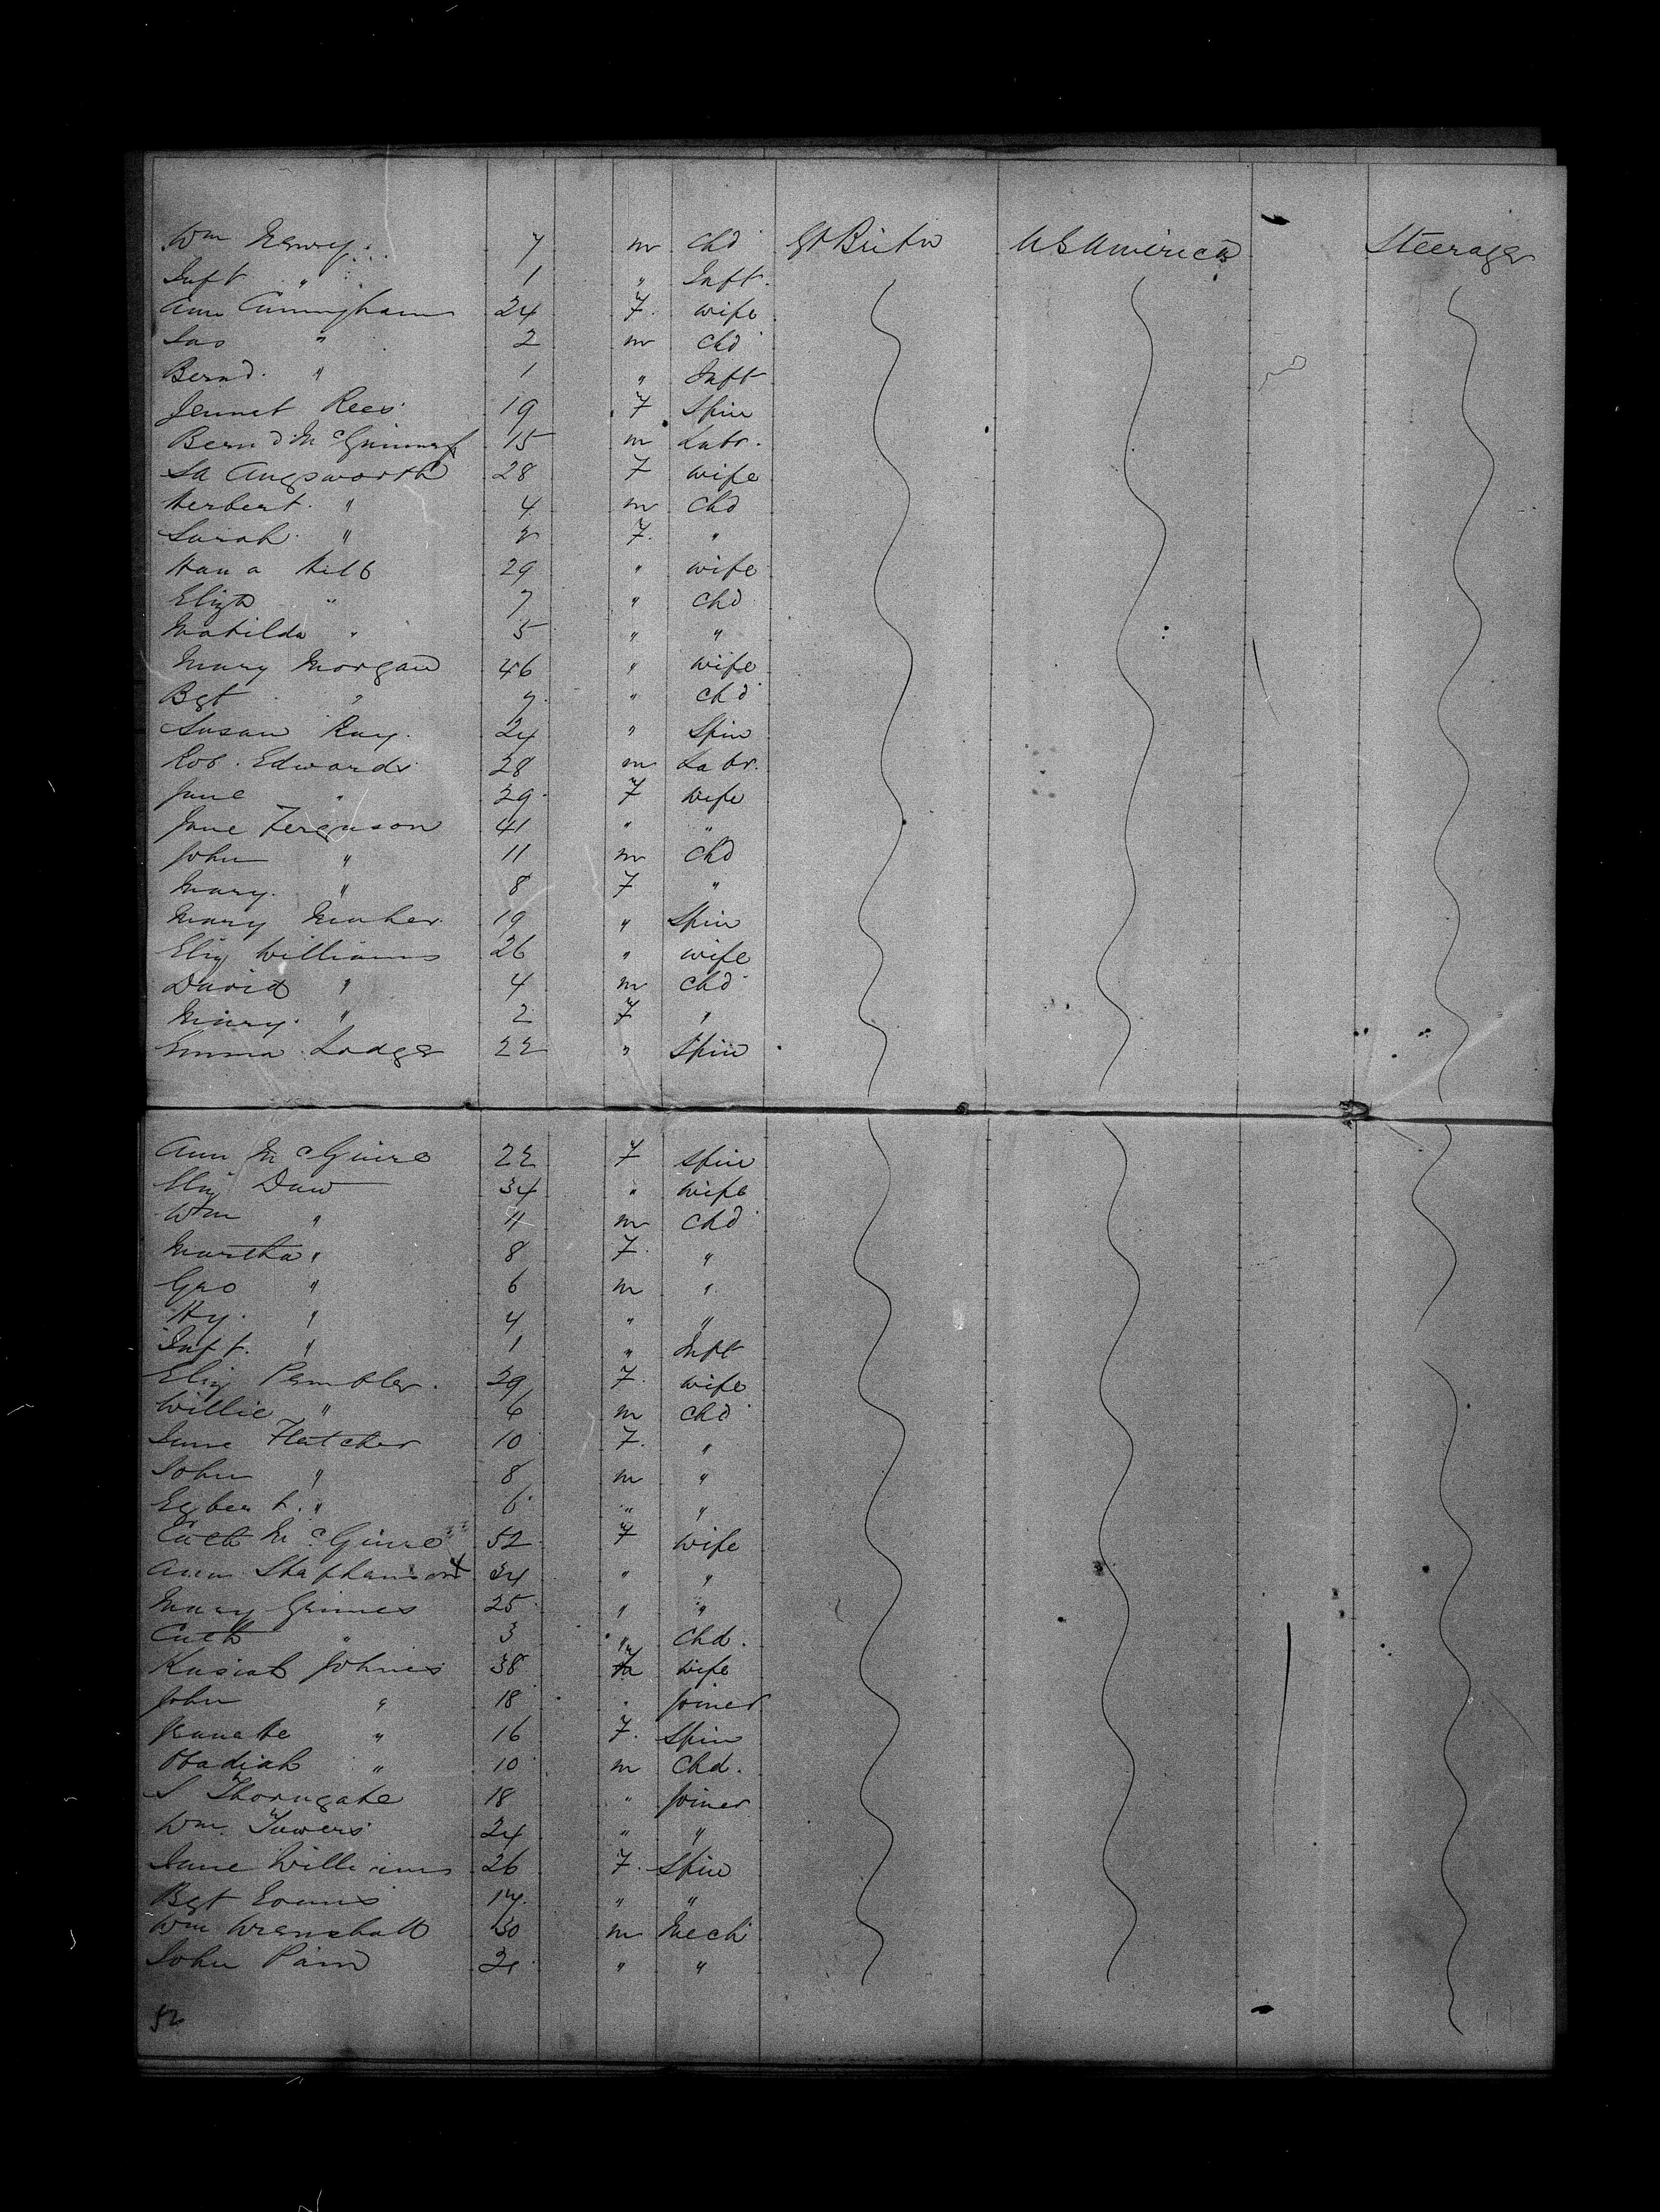 Wm 7 m Chd Gt Britn U S America Steerage
Inft " 1 " Inft.
Ann Cuningham 24 F. wife
Jas " 2 m Chd
Bernd. " 1 " Inft
Jennet Rees 19 F Spin
Bernd Mc 15 m Labr.
Sa Augsworth 28 F wife
Herbert. " 4 m Chd
Sarah " 2 F. "
Hana 29 " wife
Eliza " 7 " Chd
Matilda " 5 " "
Mary Morgan 46 " wife
Bgt " 7 " Chd
Susan Ray. 24 " Spin
Rob. Edwards 28 m Labr.
Jane " 29 F wife
Jane Ferguson 41 " "
John " 11 m Chd
Mary. " 8 F "
Mary Maher 19 " Spin
Eliz Williams 26 " wife
David " 4 m Chd
Mary. " 2 F "
Emma Lodge 22 " Spin
Ann McGuire 22 F Spin
Eliz Daw 34 " wife
Wm " 11 m Chd
Martha " 8 F. "
Geo " 6 m "
Hy. " 4 " "
Inft. " 1 " Inft
Eliz Pembler. 29 F. wife
Willie " 6 m Chd
Jane Fletcher 10 F. "
John " 8 m "
Egbert. " 6 " "
Cath McGuire 52 F wife
Ann Stephenson 34 " "
Mary Grimes 25 " "
Cath " 3 " Chd.
Kasiah Johnes 38 wife
John " 18 " Joiner
Janette " 16 F. Spin
Obadiah " 10 m Chd.
S Thorngate 18 " Joiner
Wm. Towers 24 " "
Jane Williams 26 F. Spin
Bgt Evans 17. " "
Wm Wrenshall 30 m Mech
John Pain 21 " "
52